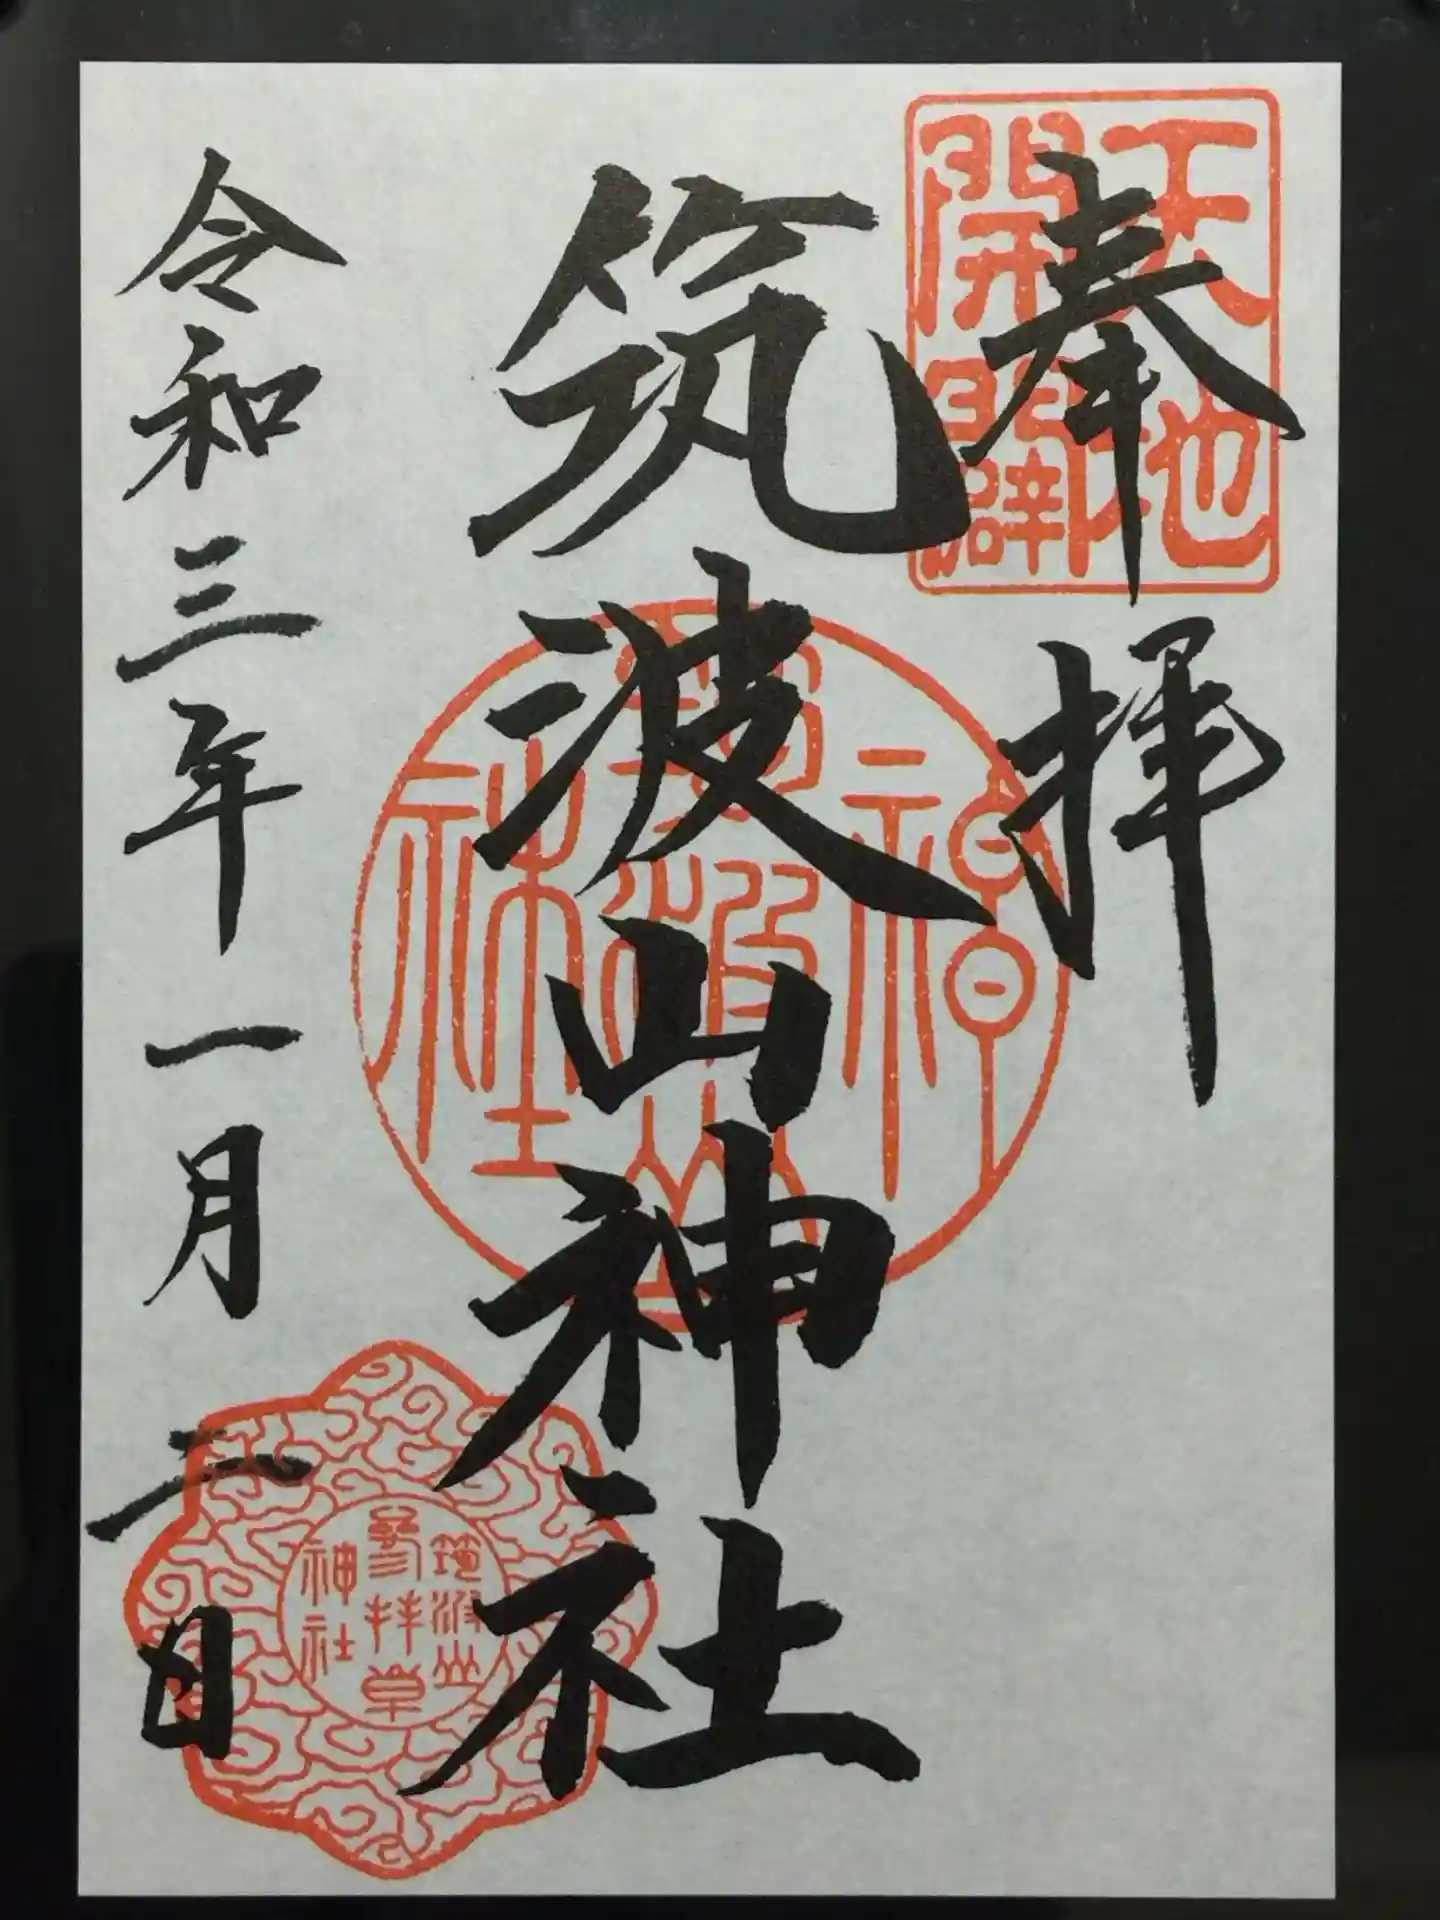 奉拝
天地
開闢
筑波山神社
神
筑波山
社
令和三年一月二日
筑波山
參拝章
神社